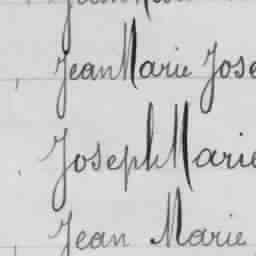 Jean Marie Jose
Joseph Marie
Jean Marie